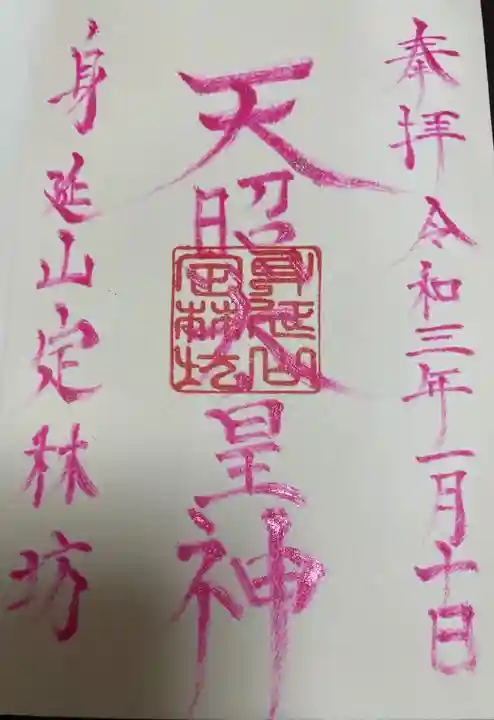 奉拝 令和三年一月十日
天照大皇神
身延山
定林坊
身延山定林坊